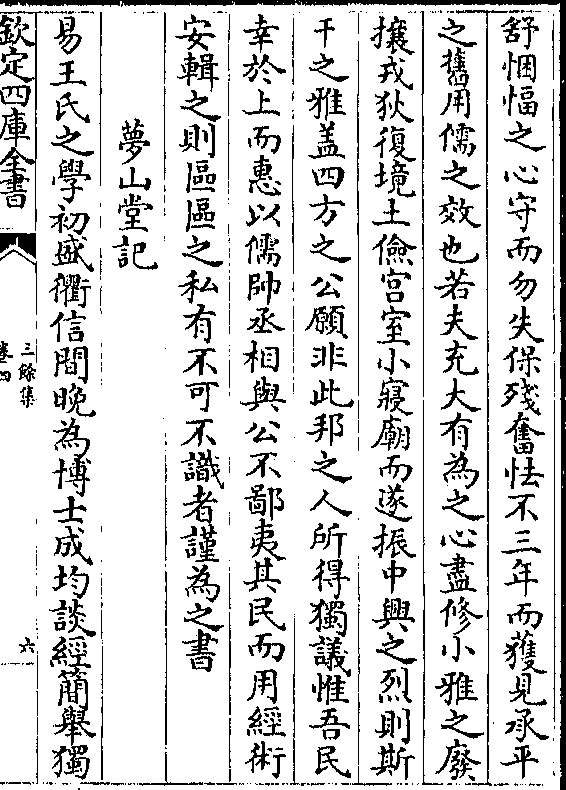 舒悃愊之心守而勿失保殘奮怯不三年而獲見承平
之舊用儒之效也若夫充大有為之心盡修小雅之廢
攘戎狄復境土儉宫室小寢廟而遂振中興之烈則斯
干之雅盖四方之公願非此邦之人所得獨議惟吾民
幸於上而惠以儒帥丞相與公不鄙夷其民而用經術
安輯之則區區之私有不可不識者謹為之書
夢山堂記
易王氏之學初盛衢信間晚為博士成均談經簡舉獨
欽定四庫全書
三餘集
卷四
六